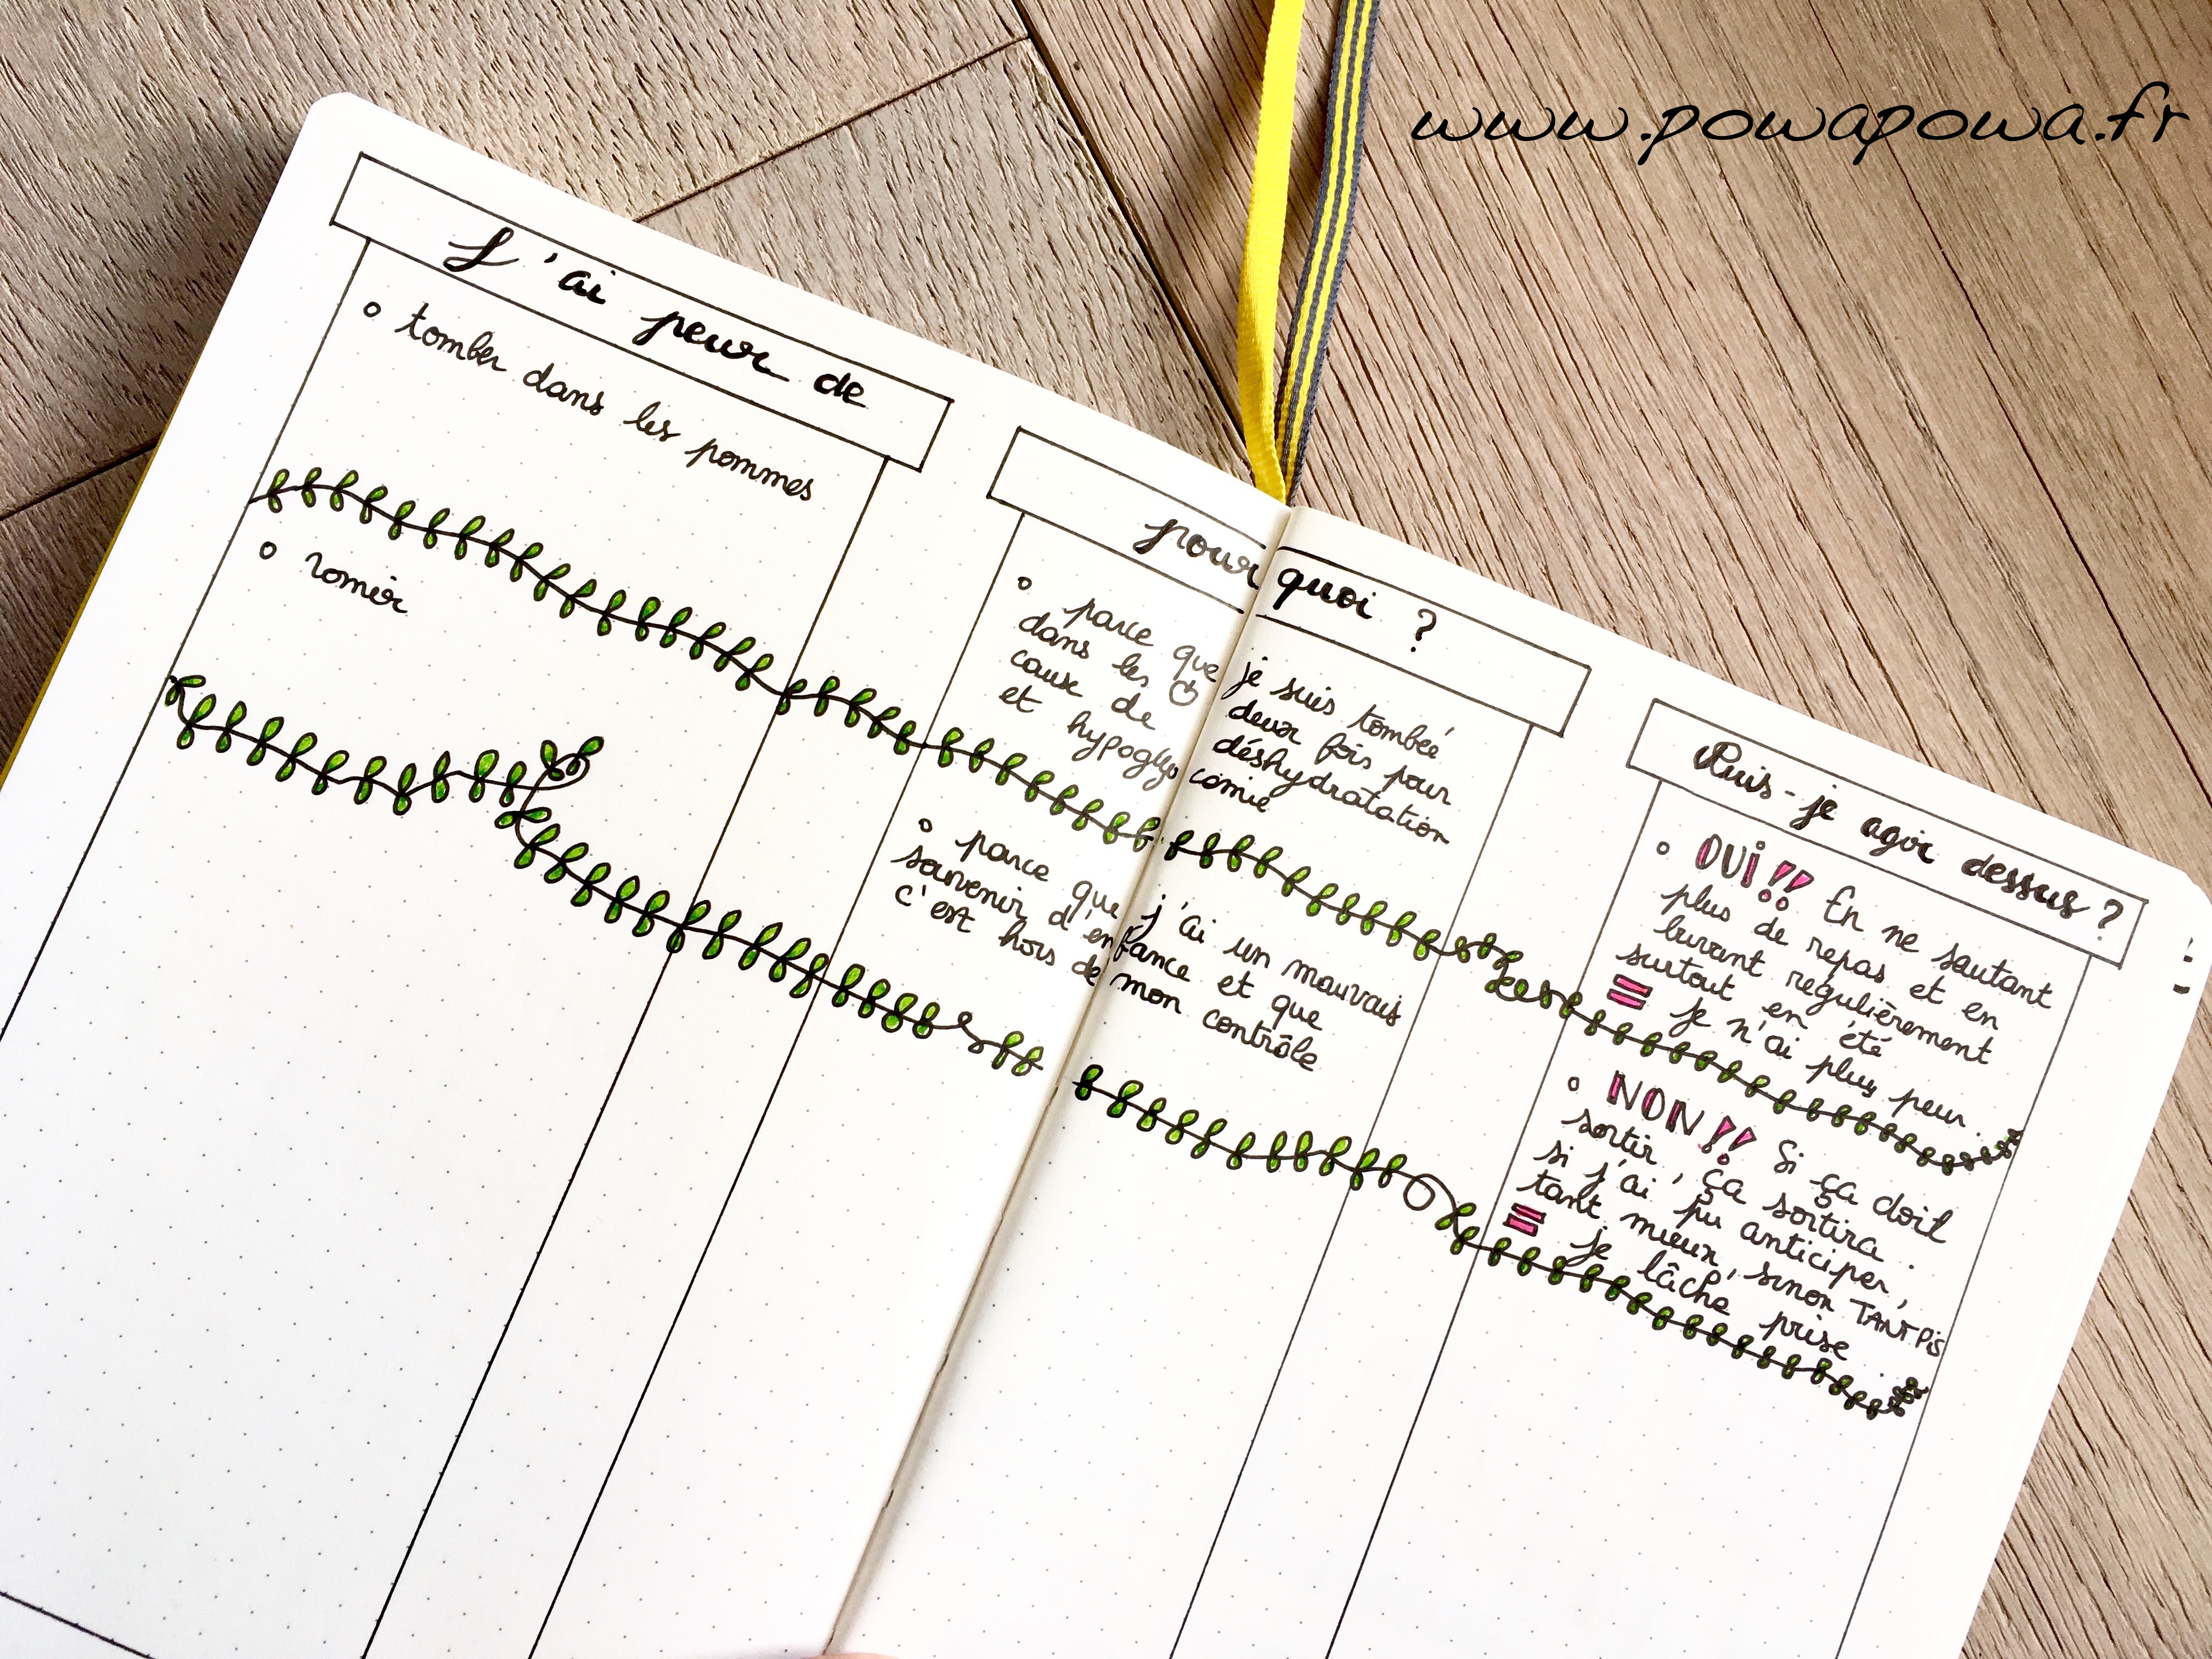 www.powapowa.fr
J'ai peur de
° tomber dans les pommes
° vomir
pourquoi ?
° parce que je suis tombée
dans les deux fois pour
cause de déshydratation
et hypoglycémie
° parce que j'ai un mauvais
souvenir d'enfance et que
c'est hors de mon contrôle
Puis-je agir dessus ?
° OUI !! En ne sautant
plus de repas et en
buvant regulièrement
surtout en été
= je n'ai plus peur.
° NON !! Si ça doit
sortir, ça sortira.
si j'ai pu anticiper,
tant mieux, sinon TANT PiS
= je lâche prise.